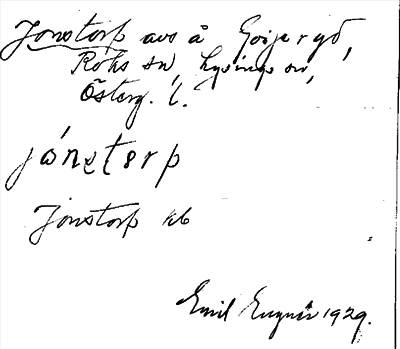 Jonstorp avs å Goijeryd,
Röks sn, Lysings hd,
Österg. l.
jónstorp
Jonstorp kb
Emil 1929.